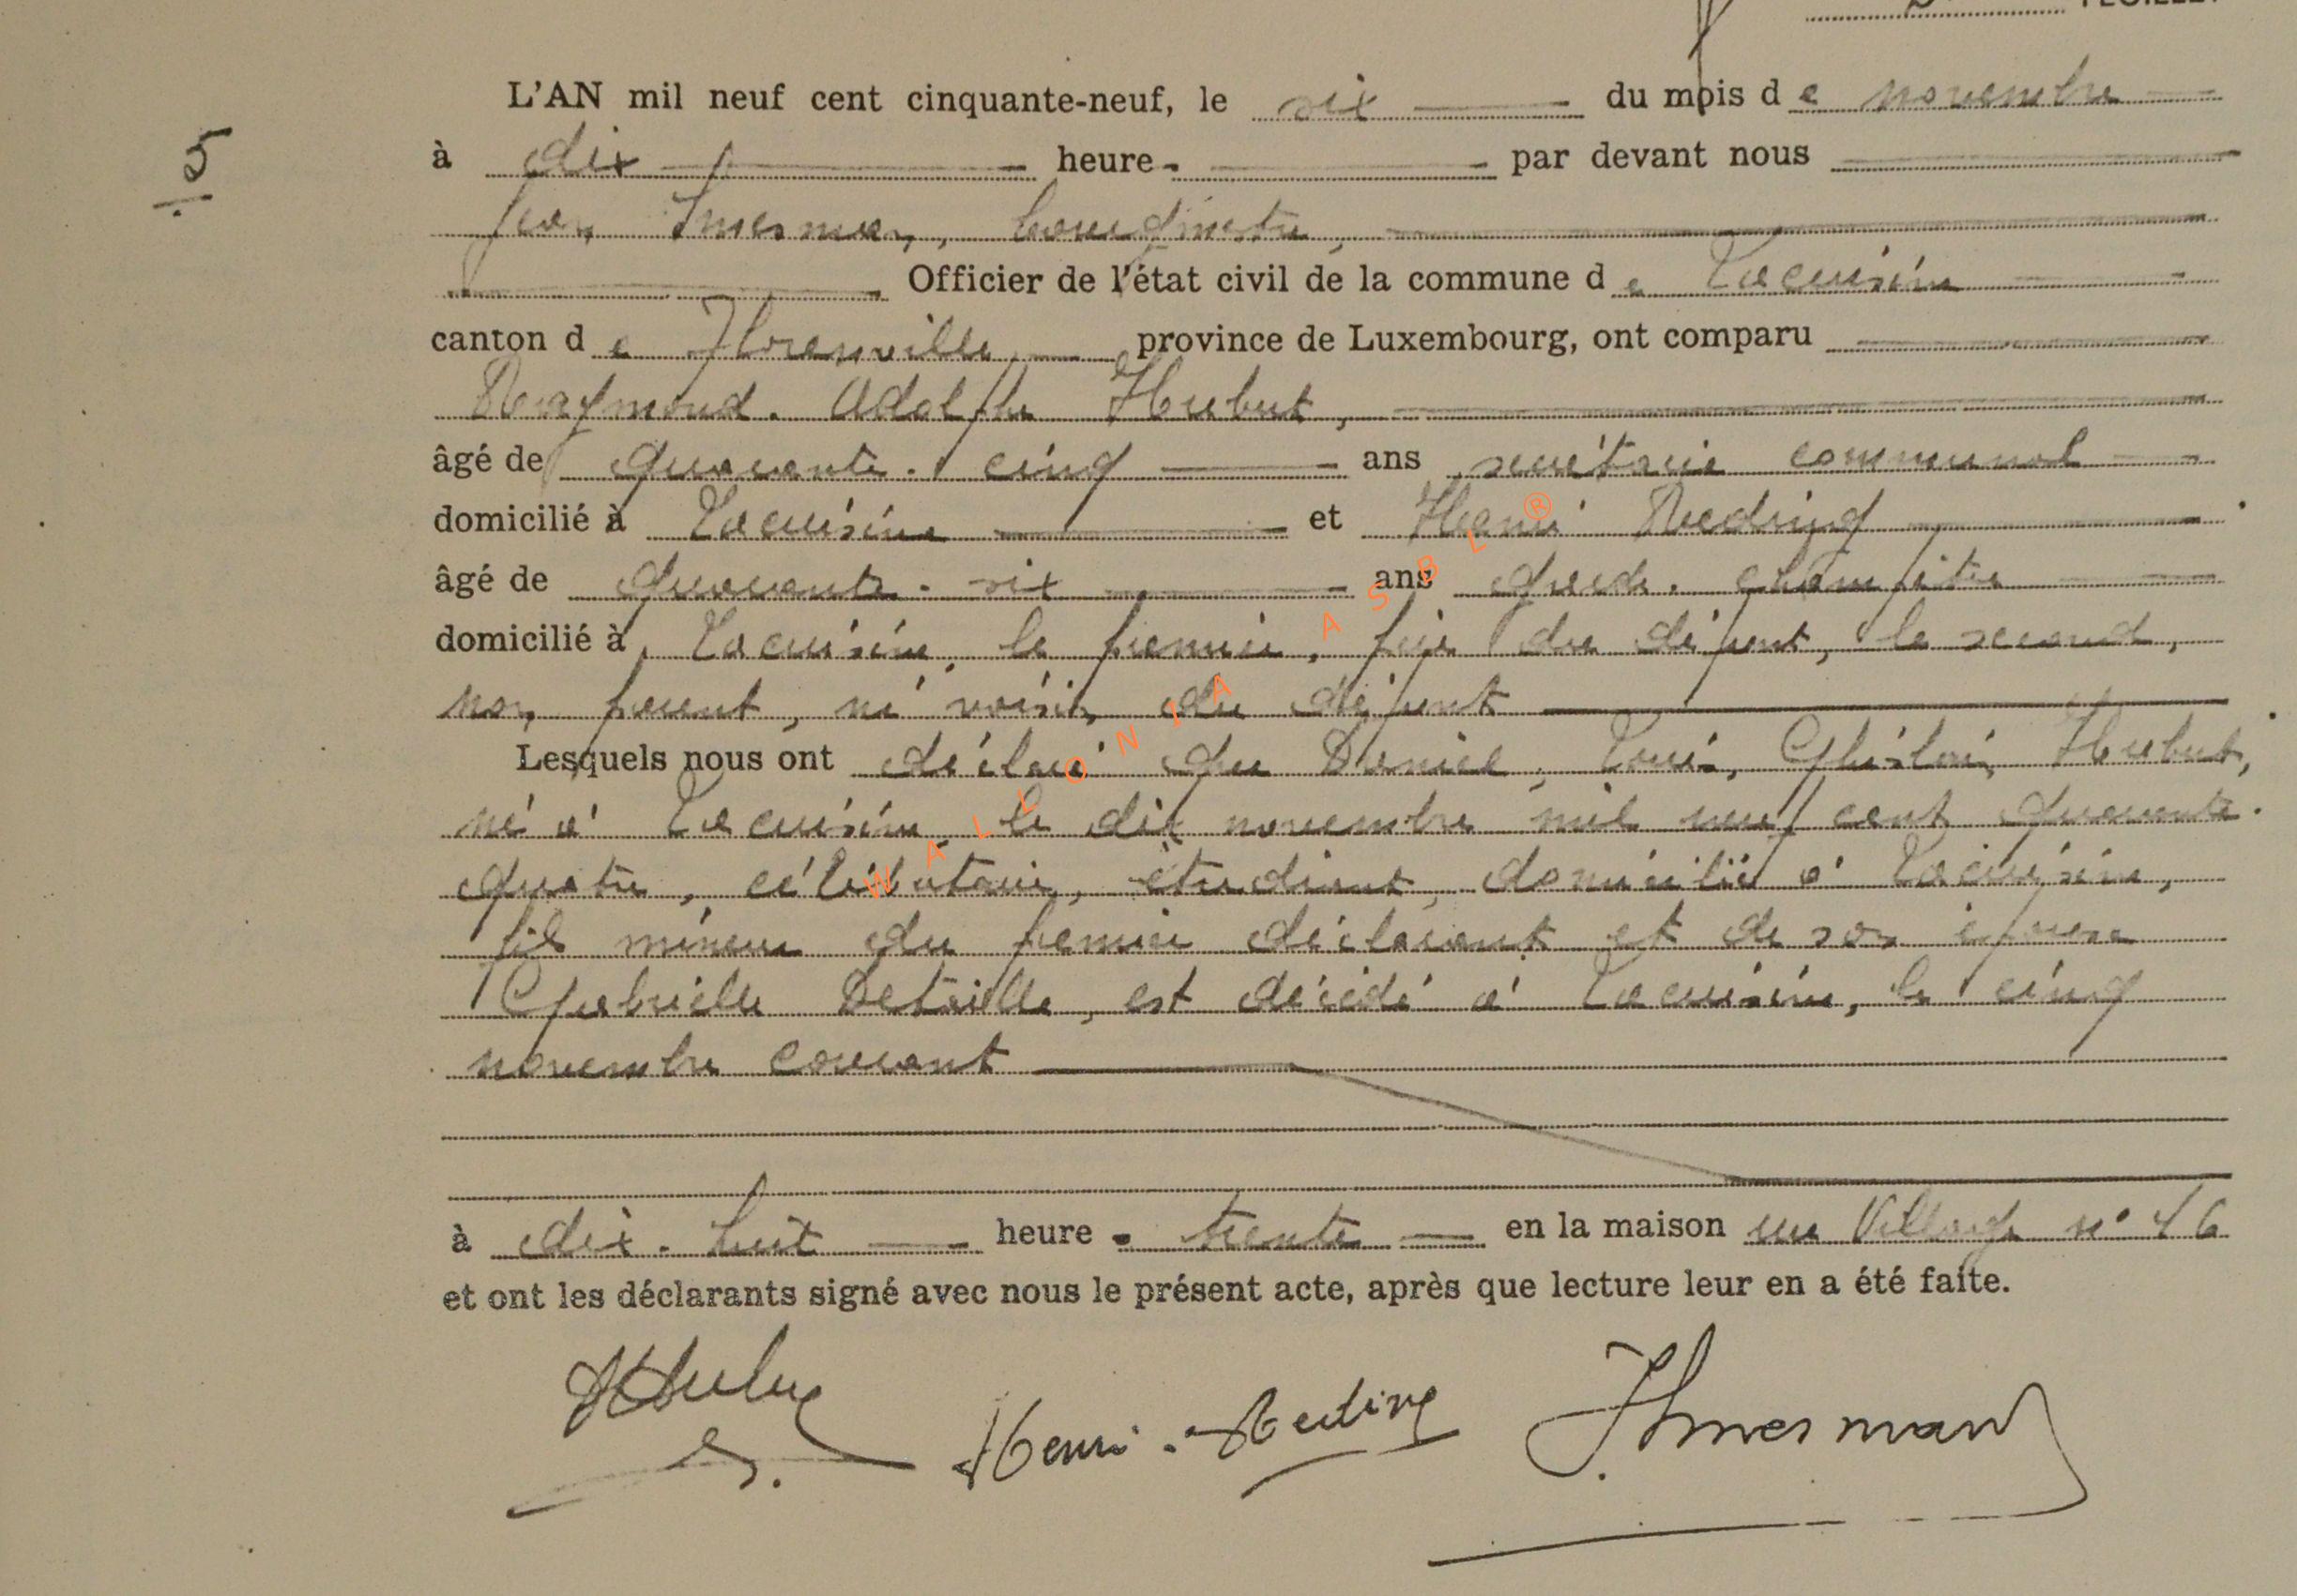 FEUILLET
L'AN mil neuf cent cinquante-neuf, le six du mois de novembre
5
à dix heure - par devant nous
Jean Imesman, bourgmestre,
Officier de l'état civil de la commune de Lacuisine
canton de Florenville, province de Luxembourg, ont comparu
Raymond. Adolphe Hubert,
âgé de quarante-cinq ans secrétaire communal
domicilié à Lacuisine et Henri Reding
âgé de quarante-six ans garde-champêtre
domicilié à Lacuisine, le premier, père du défunt, le second,
non parent, ni voisin du défunt
Lesquels nous ont déclaré que Daniel, Louis, Ghislain Hubert,
né à Lacuisine le dix novembre mil neuf cent quarante-
quatre, célibataire, étudiant, domicilié à Lacuisine,
fils mineur du premier déclarant et de son épouse
Gabrielle Detaille, est décédé à Lacuisine, le cinq
novembre courant
à dix-huit heure - trente en la maison rue Village n° 16
et ont les déclarants signé avec nous le présent acte, après que lecture leur en a été faite.
Henri Reding
WALLONIA ASBL ®